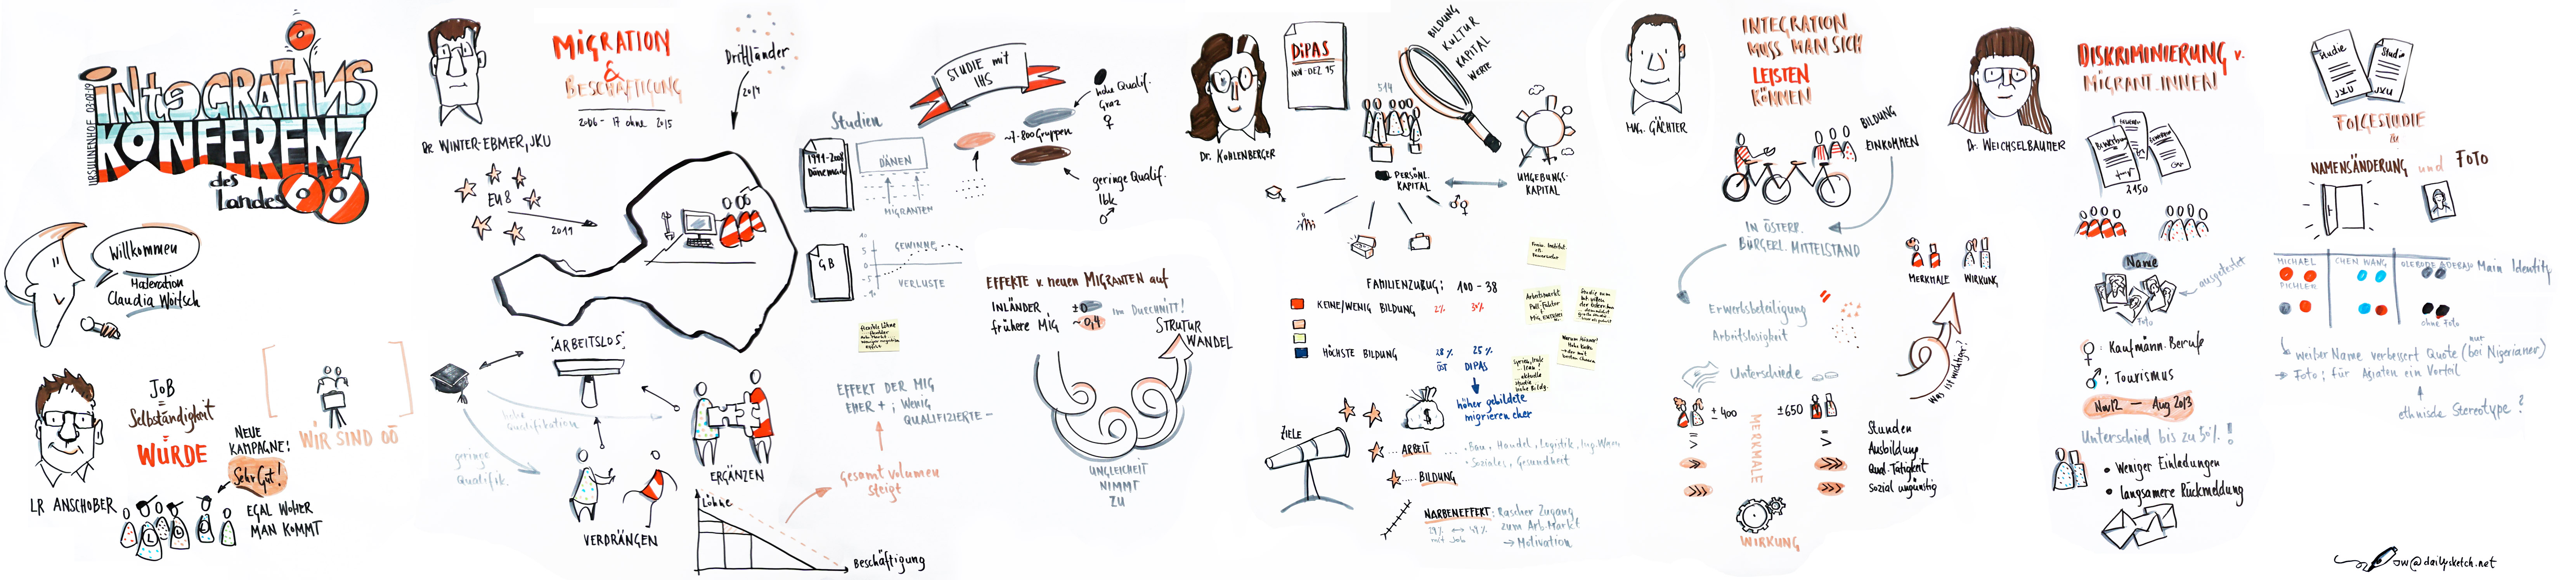 URSULINENHOF 03.07.19
INtEGRATiONS
KONFERENZ
des
Landes
OÖ
Willkommen
Moderation
Claudia Wörtsch
LR ANSCHOBER
JOB
=
Selbständigkeit
=
WÜRDE
NEUE
KAMPAGNE:
Sehr Gut!
EGAL WOHER
MAN KOMMT
L L L
WIR SIND OÖ
DR. WINTER-EBMER, JKU
MiGRATION
&
BESCHÄFTIGUNG
2006 - 17 ohne 2015
Drittländer
2014
EU 8
2011
ARBEITSLOS
hohe
Qualifikation
geringe
Qualifik.
VERDRÄNGEN
ERGÄNZEN
Löhne
Beschäftigung
Gesamt volumen
steigt
EFFEKT DER MIG
EHER + ; WENIG
QUALIFIZIERTE -
Studien
1991-2008
Dänemark
DÄNEN
MIGRANTEN
GB
10
5
0
-5
GEWINNE
VERLUSTE
STUDIE mit
IHS
hohe Qualif.
Graz
♀
~7-800 Gruppen
geringe Qualif.
Ibk
♂
EFFEKTE v. neuen MIGRANTEN auf
INLÄNDER ±0 im DUECHNITT!
frühere MIG ~ 0,4
STRUTUR
WANDEL
UNGLEICHEIT
NIMMT
ZU
Dr. KOHLENBERGER
DiPAS
NOV-DEZ 15
BILDUNG
KULTUR
KAPITAL
WERTE
514
PERSÖNL.
KAPITAL
UMGEBUNGS-
KAPITAL
FAMILIENZUZUG: 100 - 38
KEINE/WENIG BILDUNG 2% 30%
HÖCHSTE BILDUNG 28% 25%
ÖST DIPAS
höher gebildete
migrieren eher
$
ZIELE
... ARBEIT .... • Bau, Handel, Logistik, Ing.Wesen
• Soziales, Gesundheit
.... BILDUNG
NARBENEFFEKT: Rascher Zugang
zum Arb.Markt
→ Motivation
mit Job
MAG. GÄCHTER
INTEGRATION
MUSS MAN SICH
LEISTEN
KÖNNEN
BILDUNG
EINKOMMEN
IN ÖSTERR.
BÜRGERL. MITTELSTAND
Erwerbsbeteiligung
Arbeitslosigkeit
Unterschiede
± 400 ±650
MERKMALE
WIRKUNG
Stunden
Ausbildung
Qual. Tätigkeit
Sozial ungünstig
MERKMALE WIRKUNG
Was ist wichtiger?
Dr. WEICHSELBAUMER
DISKRIMINIERUNG v.
MIGRANT.INNEN
2150
Name
Foto
ausgetestet
♀: Kaufmänn. Berufe
♂: Tourismus
Nov12 — Aug 2013
Unterschied bis zu 50% !!
• Weniger Einladungen
• langsamere Rückmeldung
Studie
JKU
Studie
JKU
FOLGESTUDIE
zu
NAMENSÄNDERUNG und FOTO
MICHAEL
PICHLER
CHEN WANG
Main Identity
ohne Foto
→ weißer Name verbessert Quote (nur bei Nigerianer)
→ Foto: für Asiaten ein Vorteil
ethnische Stereotype?
ow@dailysketch.net